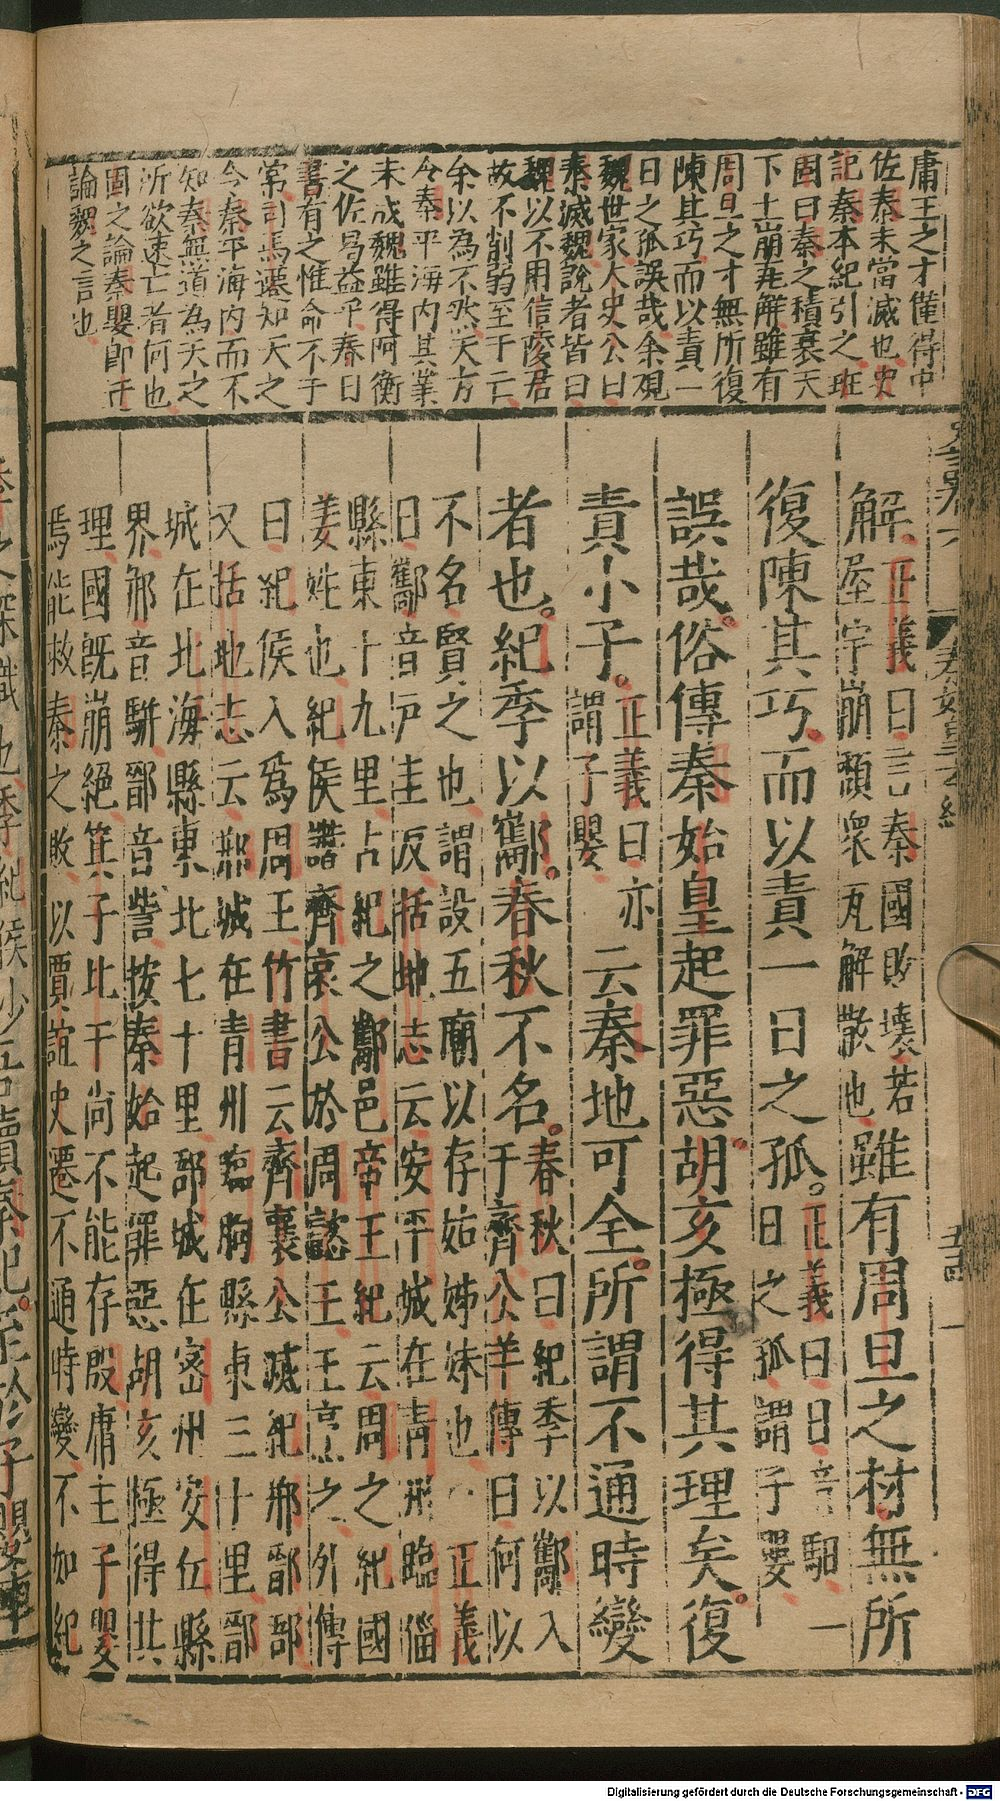 庸王之才僅得中
佐秦未當滅也史
記秦本紀引之班
固曰秦之積衰天
下土崩瓦解雖有
周旦之才無所復
陳其巧而以責一
日之孤誤哉余覌
魏世家太史公曰
秦滅魏說者皆曰
魏以不用信陵君
故不削弱至于亡
余以為不然天方
令秦平海内其業
未成魏雖得阿衡
之佐曷益乎春曰
書有之惟命不于
常司馬遷知天之
今秦平海内而不
知秦無道為天之
所欲速亡者何也
固之論秦嬰即迁
論魏之言也
解正義曰言秦國敗壞若
屋宇崩頹衆瓦解散也雖有周旦之材無所
復陳其巧而以責一日之孤正義曰日音馹一
日之孤謂子嬰
誤哉俗傳秦始皇起罪惡胡亥極得其理矣復
責小子正義曰亦
謂子嬰云秦地可全所謂不通時變
者也紀季以酅春秋不名春秋曰紀季以酅入
于齊公羊傳曰何以
不名賢之也謂設五廟以存姑姊妹也 正義
曰酅音戸圭反括地志云安平城在青州臨淄
縣東十九里古紀之酅邑帝王紀云周之紀國
姜姓也紀侯譖齊哀公於周懿王王烹之外傳
曰紀侯入爲周王竹書云齊襄公滅紀郱鄑郚
又括地志云郱城在青州臨朐縣東三十里鄑
城在北海縣東北七十里郚城在密州安丘縣
界郱音駢鄑音訾按秦始起罪惡胡亥極得其
理國旣崩絕箕子比干尚不能存殷庸主子嬰
焉能救秦之敗以賈誼史遷不通時變不如紀
五十四
Digitalisierung gefördert durch die Deutsche Forschungsgemeinschaft - DFG